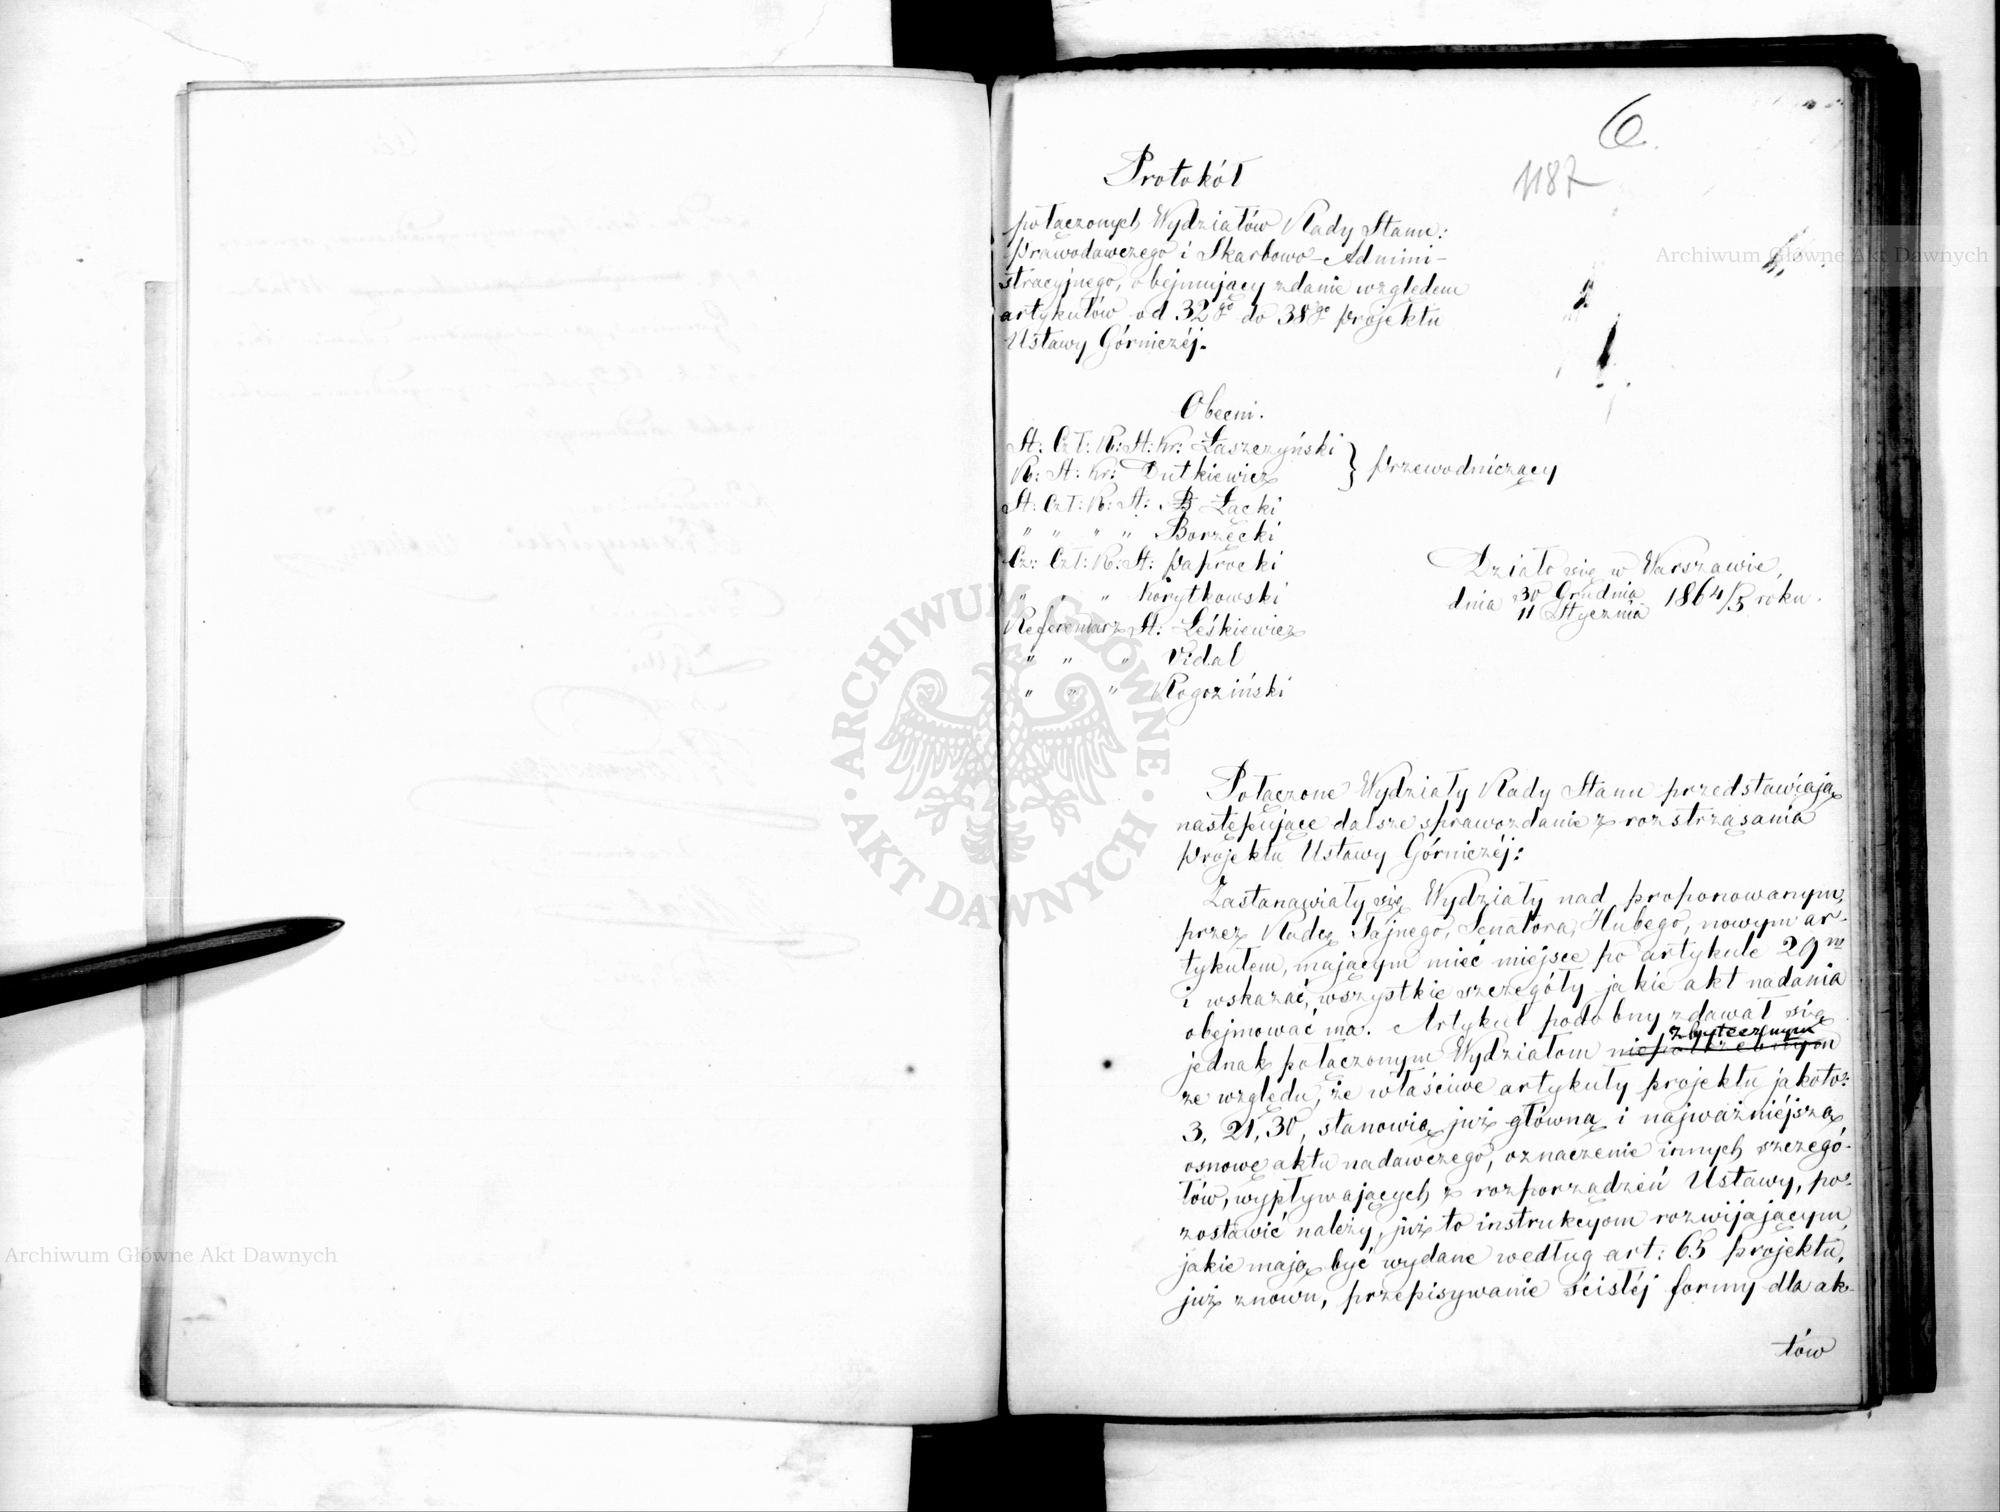 6.
1187
Protokół
połaczonych Wydziałów Rady Stanu:
Prawodawczego i Skarbowo-Admini-
stracyjnego, obejmujący zdanie względem
artykułów od 32go do 38go projektu
Ustawy Górniczéj.
Obecni.
St: Czł: R: St: Kr: Łaszczyński } przewodniczący
R: St: Kr: Dutkiewicz
St: Czł: R: St: Łącki
" " " " Borzęcki
Cz: Czł: R: St: Paprocki
" " " Korytkowski
Referendarz St: Leśkiewicz
" " " Vidal
" " " Rogoziński
Działo się w Warszawie,
dnia 30 Grudnia / 11 Stycznia 1864/5 roku.
Połączone Wydziały Rady Stanu przedstawiają
następujące dalsze sprawozdanie z rozstrząsania
projektu Ustawy Górniczéj:
Zastanawiały się Wydziały nad proponowanym,
przez Radcę Tajnego, Senatora, Hubego, nowym ar-
tykułem, mającym mieć miejsce po artykule 29m
i wskazać, wszystkie szczegóły jakie akt nadania
obejmować ma. Artykuł podobny zdawał się
zbytecznym
jednak połączonym Wydziałom niepotrzebnym
ze względu, że właściwe artykuły projektu jakoto:
3, 21, 30, stanowią już główną i najważniejszą
osnowę aktu nadawczego, oznaczenie innych szczegó-
łów, wypływających z rozporządzeń Ustawy, po-
zostawić należy, już to instrukcyom rozwijającym,
jakie mają być wydane według art: 65 projektu,
już znowu, przepisywanie ścisłéj formy dla ak-
tów
Archiwum Główne Akt Dawnych
Archiwum Główne Akt Dawnych
ARCHIWUM GŁÓWNE · AKT DAWNYCH ·